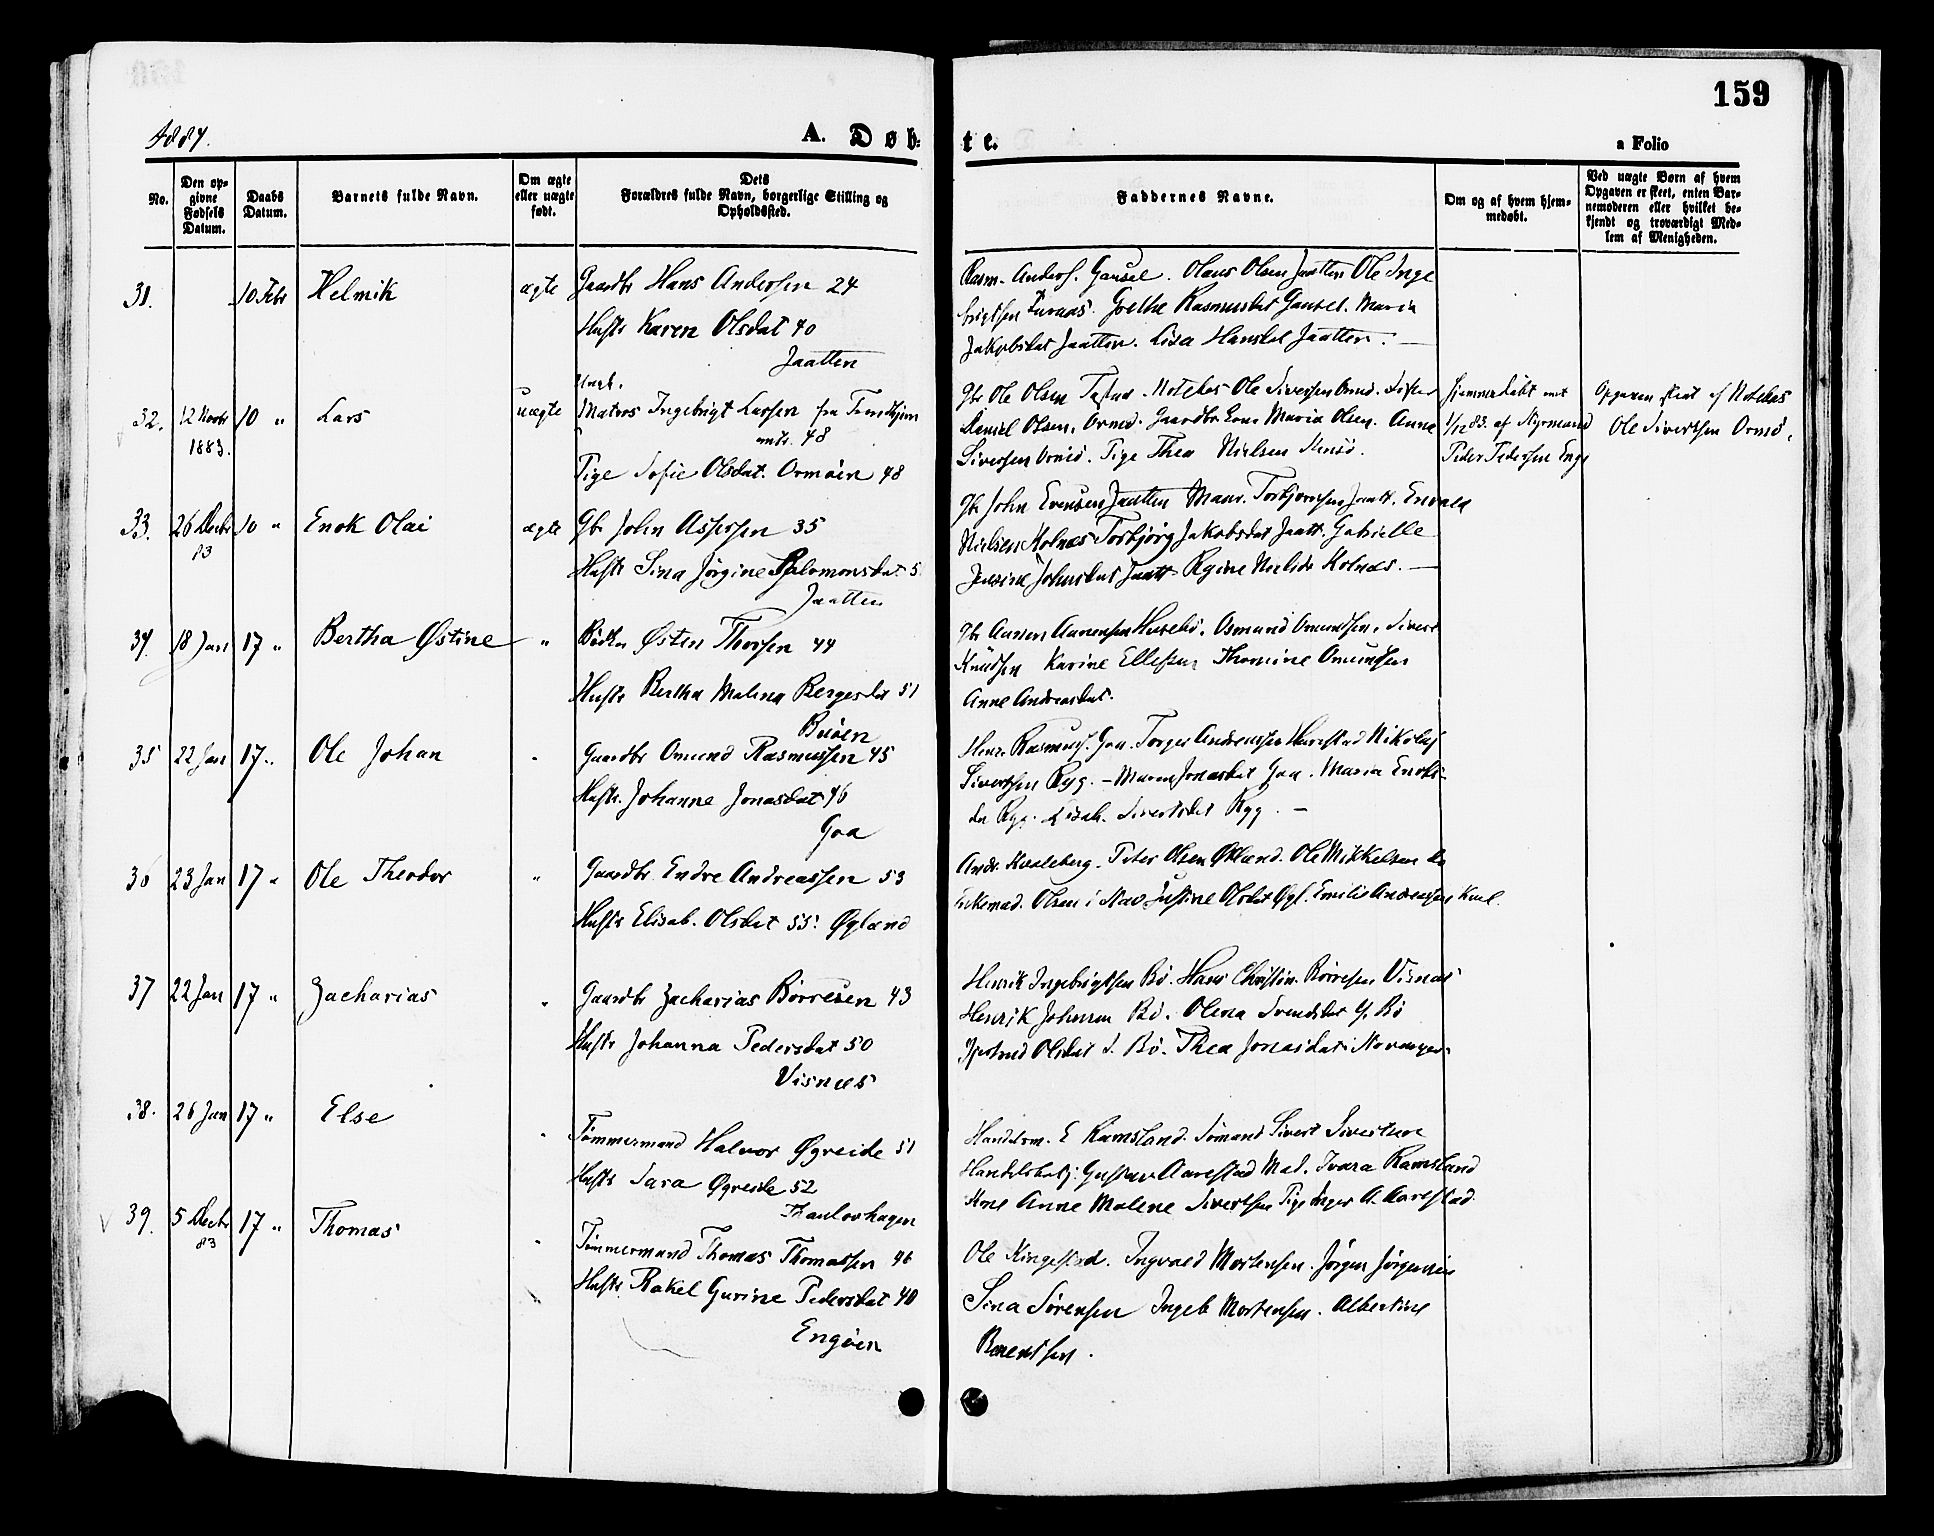 159
1884.
A. Døb-
te.
a Folio
No.
Den op-
givne
Fødsels
Datum.
Daabs
Datum.
Barnets fulde Navn.
Om ægte
eller uægte
født.
Dets
Forældres fulde Navn, borgerlige Stilling og
Opholdssted.
Faddernes Navne.
Om og af hvem hjem-
medøbt.
Ved uægte Børn af hvem
Opgaven er skeet, enten Bar-
nemoderen eller hvilket be-
kjendt og troværdigt Med-
lem af Menigheden.
31. 10 Febr Helmik ægte Gaardbr Hans Andersen 24
Hustr Karen Olsdat 40
Jaatten
Rasm. Anders. Gausel. Olaus Olsen Jaatten Ole Inge
brigtsen Grethe Rasmusdat Gausel. Maria
Jakobsdat Jaatten. Lisa Hansdt Jaatten. —
32. 12 Novbr 10 " Lars uægte
1883.
Ungk.
Matros Ingebrigt Larsen fra Trondhjem
amt. 48
Pige Sofie Olsdat. Ormøen 48
Gbr Ole Olsen Tasta. Notebas Ole Sivertsen Ormø.
Daniel Olsen, Ormø. Gaardbr Kone Maria Olsen. Anne
Siversen Ormø. Pige Thea Nielsen
Hjemmedøbt
1/12 83. af Styrmand
Peder Pedersen Enge
Opgaven skeet af Notebas
Ole Sivertsen Ormø.
33. 26 Decbr 10 " Enok Olai ægte Gbr John Aspersen 35
83
Hustr Sina Jørgine Salomonsdat 5
Jaatten
Gbr John Evensen Jaatten Maur. Torbjørnsen Jaatt. Envald
Nielsen Kolnes Torbjørg Jakobsdat Jaatt. Gabrielle
Johnsdat Jaatt Rgine Nielsdt Kolnæs. —
34. 18 Jan 17 " Bertha Østine " Bødker Østen Thorsen 44
Hustr Bertha Malena Bergesdat 51
Buøen
Gbr Aanen Aanensen Husebø. Osmund Omundsen. Sivert
Knudsen Karine Ellefsen Thomine Omundsen
Anne Andreasdat.
35 22 Jan 17 " Ole Johan " Gaardbr Omund Rasmussen 45
Hustr. Johanne Jonasdat 46
Goa
Henr. Rasmus. Goa. Torger Andreassen Harestad Nikolaj
Sivertsen Ryg. – Maren Jonasdat Goa. Maria Enoks-
da Ryg. Lisab. Sivertsdat Ryg. —
36 23 Jan 17 " Ole Theodor " Gaardbr Endre Andreassen 53
Hustr Elisab. Olsdat 55. Øgland
Andr. Kvaleberg. Peter Olsen Økland. Ole Mikkelsen
Enkemad. Olsen i Stav Justine Olsdat Øgl. Emilie Andreasen Kval.
37 22 Jan 17 " Zacharias " Gaardbr Zacharias Børresen 43
Hustr Johanna Pedersdat 50
Visnæs
Henrik Ingebrigtsen Bø. Hans Christin. Børresen Visnæs
Henrik Johnsen Bø. Olena Svendsdat Y. Bø
Gjertrud Olsdat d. Bø. Thea Jonasdat
38. 26 Jan 17 " Else " Tømmermand Halvor Øgreide 51
Hustr Sara Øgreide 52
Paulovhagen
Handelsm. E Ramsland. Sømand Sivert Sivertsen
Handelsbetj. Gustav Aarestad Mad. Ivara Ramsland
Kone Anne Malene Sivertsen Pige Inger A. Aarestad.
39. 5 Decbr 17 " Thomas " Tømmermand Thomas Thomassen 46
83
Hustr Rakel Gurine Pedersdat 40
Engøen
Ole Ringestad. Ingvald Mortensen. Jørgen Jørgensen
Sina Sørensen Ingeb Mortensen. Albertine
Berentsen.